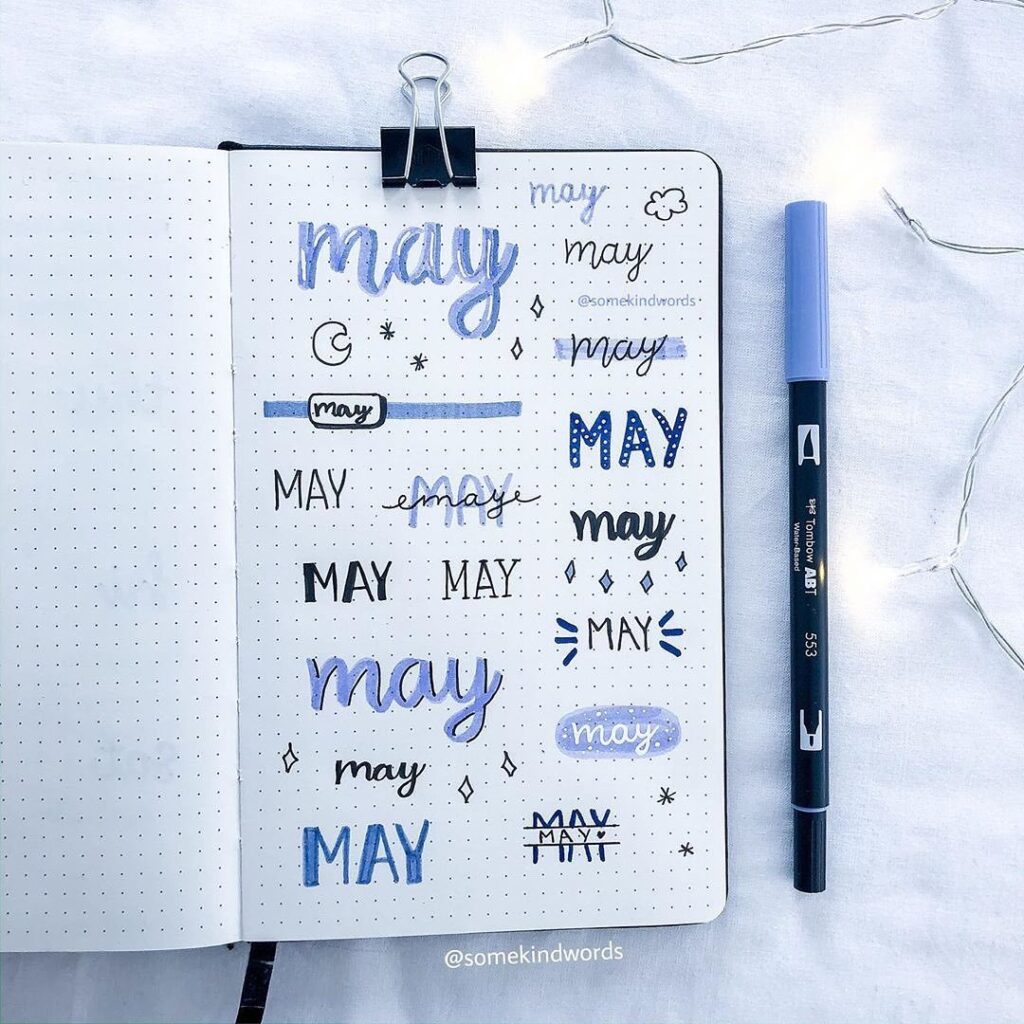 may
may
MAY
MAY
may
MAY
MAY
may
may
MAY
may
may
@somekindwords
may
MAY
may
MAY
may
MAY
MAY
@somekindwords
Tombow ABT
Water-Based
553